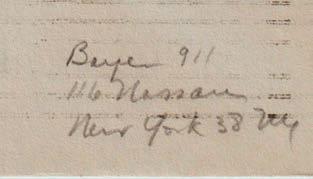 Bayer 911
116 Nassau
New York 38 NY